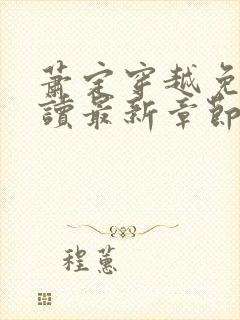 蕭定穿越免
讀最新章節
程蕙